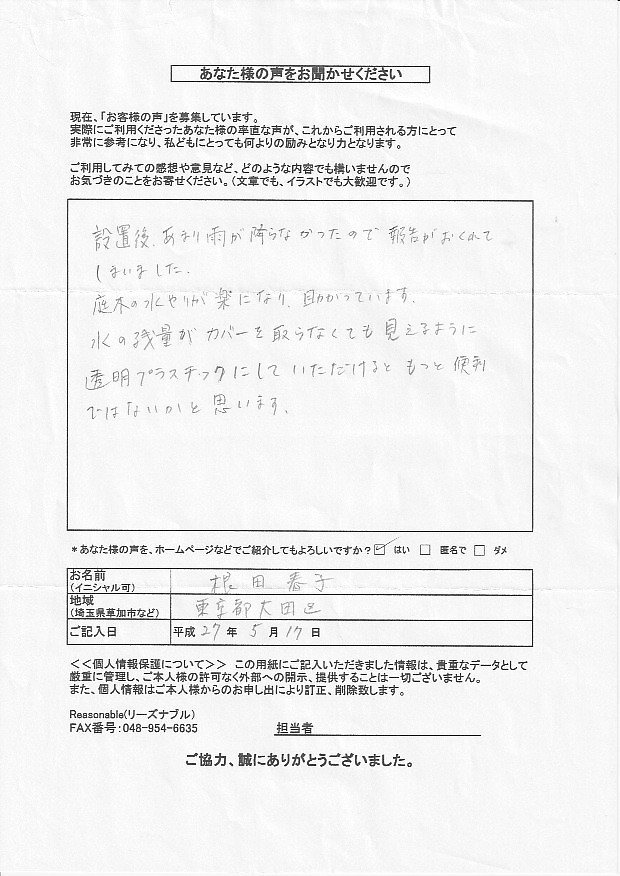 あなた様の声をお聞かせください
現在、「お客様の声」を募集しています。
実際にご利用くださったあなた様の率直な声が、これからご利用される方にとって
非常に参考になり、私どもにとっても何よりの励みとなり力となります。
ご利用してみての感想や意見など、どのような内容でも構いませんので
お気づきのことをお寄せください。（文章でも、イラストでも大歓迎です。）
設置後、あまり雨が降らなかったので報告がおくれて
しまいました。
庭木の水やりが楽になり、助かっています。
水の残量がカバーを取らなくても見えるように
透明プラスチックにしていただけるともっと便利
ではないかと思います。
*あなた様の声を、ホームページなどでご紹介してもよろしいですか？ ☑ はい □ 匿名で □ ダメ
お名前
(イニシャル可) 根田 春子
地域
(埼玉県草加市など) 東京都大田区
ご記入日 平成 27 年 5 月 17 日
＜＜個人情報保護について＞＞ この用紙にご記入いただきました情報は、貴重なデータとして
厳重に管理し、ご本人様の許可なく外部への開示、提供することは一切ございません。
また、個人情報はご本人様からのお申し出により訂正、削除致します。
Reasonable(リーズナブル)
FAX番号：048-954-6635 担当者
ご協力、誠にありがとうございました。